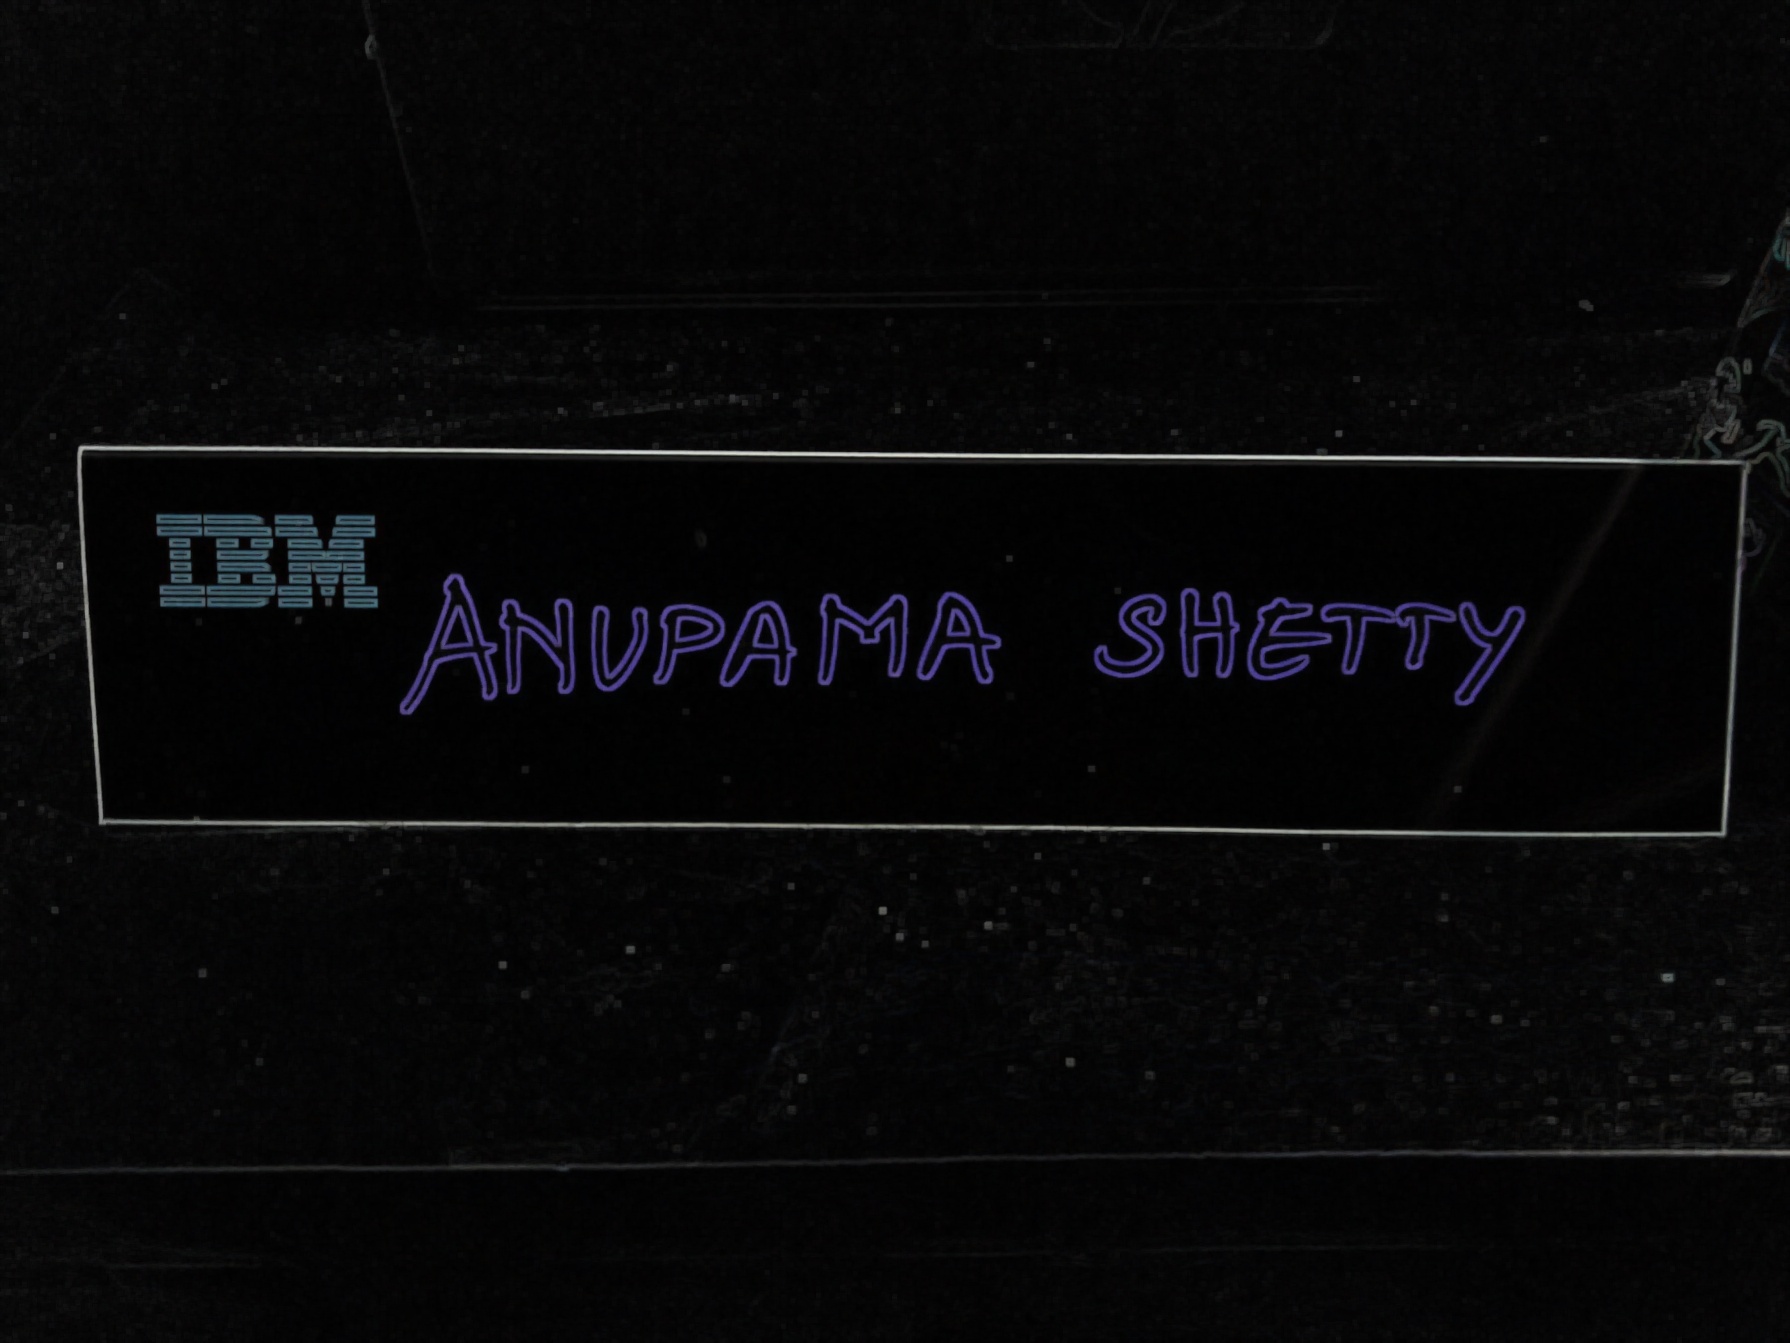 IBM
ANUPAMA SHETTY